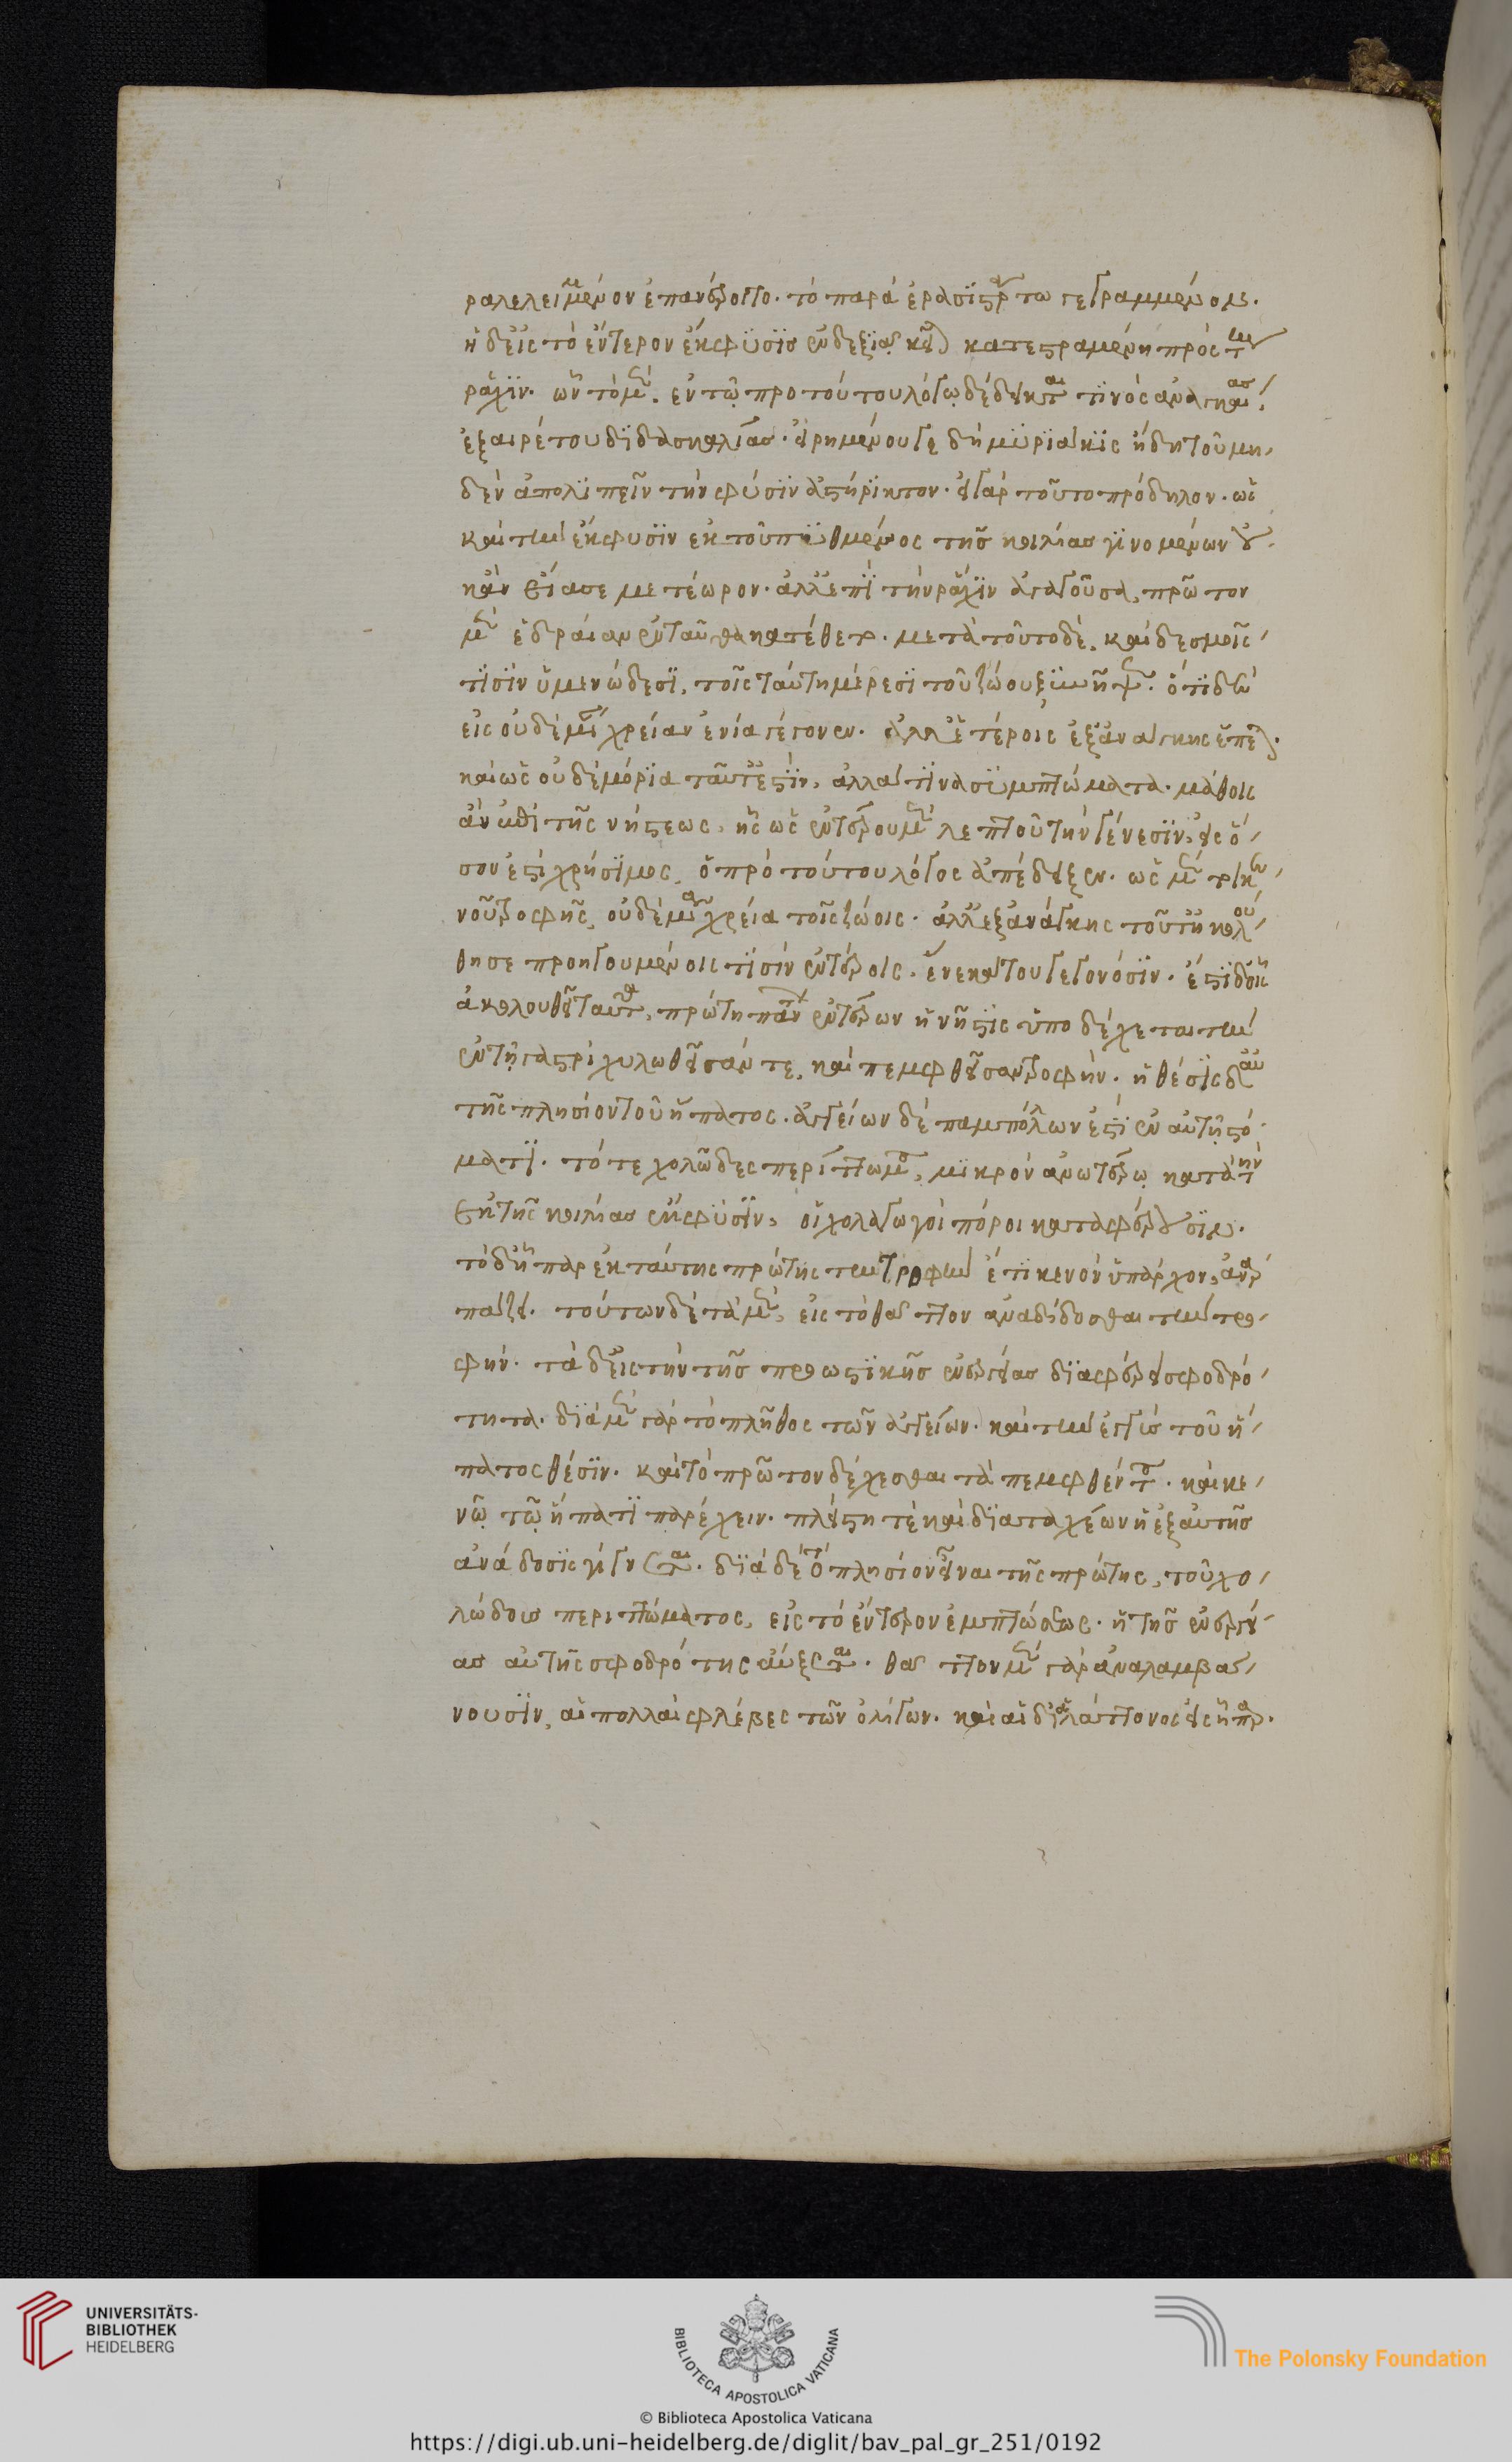 ραλελειμμένον ἐπανέρχοιτο. τὸ παρὰ ἐρασϊστράτω γεγραμμένοις.
ἡ δ' εἰς τὸ ἔντερον ἔκφυσϊς ἐν δεξϊᾷ κεῖται κατεστραμένη πρὸς τὴν
ράχϊν. ὧν τὸ μὲν. ἐν τῷ προ τούτου λόγω δέδεικται τϊνὸς ἀνάγκας
ἐξαιρέτου δϊδασκαλίας. εἰρημένου γε δὴ μυρϊάκϊς ἤδη τοῦ μη
δὲν ἀπολϊπεῖν τὴν φύσϊν ἀστήρϊκτον. εἰ γὰρ τοῦτο πρόδηλον. ὡς
καὶ τὴν ἔκφυσϊν ἐκ τοῦ πϋθμένος τῆς κοιλίας γϊνομένων οὐ
κἂν εἴασε μετέωρον. ἀλλ' ἐπὶ τὴν ράχϊν ἀγαγοῦσα, πρῶτον
μὲν ἑδραίαν ἐνταῦθα κατέθετο. μετὰ τοῦτο δὲ, καὶ δεσμοῖς
τϊσϊν ὑμενώδεσϊ, τοῖς ταύτη μέρεσϊ τοῦ ζώου ξϋνῆψεν. ὅτϊ δὲ
εἰς οὐδεμίαν χρείαν ἔνϊα γέγονεν. ἀλλ' ἑτέροις ἐξ ἀνάγκης ἕπεται.
καὶ ὡς οὐδὲ μόρϊα ταῦτ' ἐστϊν, ἀλλά τϊνα σϋμπτώματα. μάθοις
ἂν κἀπὶ τῆς νήστεως, ἧς ὡς ἐντέρου μὲν λεπτοῦ τὴν γένεσϊν, εἰς ὅ
σον ἐστὶ χρήσϊμος, ὁ πρὸ τούτου λόγος ἀπέδειξεν. ὡς μὲν τοι κε
νοῦ τροφῆς, οὐδεμία χρεία τοῖς ζώοις. ἀλλ' ἐξ ἀνάγκης τοῦτ' ἠκολού
θησε προηγουμένοις τϊσϊν ἑτέροις. ἕνεκά του γεγονόσϊν. ἔστϊ δ' οἷς
ἀκολουθεῖ ταῦτα, πρώτη πάντων ἐντέρων ἡ νῆστϊς ὑποδέχεται τὴν
ἐν τῇ γαστρὶ χυλωθεῖσάν τε, καὶ πεμφθεῖσαν τροφήν. ἡ θέσϊς δ' αὐ
τῆς πλησίον τοῦ ἥπατος. ἀγγείων δὲ παμπόλλων ἐστὶ ἐν αὐτῇ στό
ματϊ. τό τε χολῶδες περίττωμα, μϊκρὸν ἀνωτέρω κατὰ τὴν
ἐκ τῆς κοιλίας ἔκφϋσϊν, οἱ χολαγωγοὶ πόροι καταφέρουσϊν.
τὸ δ' ἧπαρ ἐκ ταύτης πρώτης τὴν τροφὴν ἔτϊ κενὸν ὑπάρχον, ἀναρ
πάζει. τούτων δὲ τὰ μὲν, εἰς τὸ θᾶττον ἀναδίδοσθαι τὴν τρο
φήν. τὰ δ' εἰς τὴν τῆς προωστϊκῆς ἐνεργείας δϊαφέρει σφοδρό
τητα. δϊὰ μὲν γὰρ τὸ πλῆθος τῶν ἀγγείων. καὶ τὴν ἐγγὺς τοῦ ἥ
πατος θέσϊν. καὶ τὸ πρῶτον δέχεσθαι τὰ πεμφθέντα. καὶ κε
νῷ τῷ ἥπατϊ παρέχειν. πλείστη τὲ καὶ δϊαταχέων ἡ ἐξ αὐτῆς
ἀνάδοσϊς γίγνεται. δϊὰ δὲ τὸ πλησίον εἶναι τῆς πρώτης, τοῦ χο
λώδους περιττώματος, εἰς τὸ ἔντερον ἐμπτώσεως. ἡ τῆς ἐνεργεί
ας αὐτῆς σφοδρότης αὔξεται. θᾶττον μὲν γὰρ ἀναλαμβά
νουσϊν, αἱ πολλαὶ φλέβες τῶν ὀλίγων. καὶ αἱ δι' ἐλάττονος εἰς ἧπαρ.
UNIVERSITÄTS-
BIBLIOTHEK
HEIDELBERG
BIBLIOTECA APOSTOLICA VATICANA
The Polonsky Foundation
© Biblioteca Apostolica Vaticana
https://digi.ub.uni-heidelberg.de/diglit/bav_pal_gr_251/0192